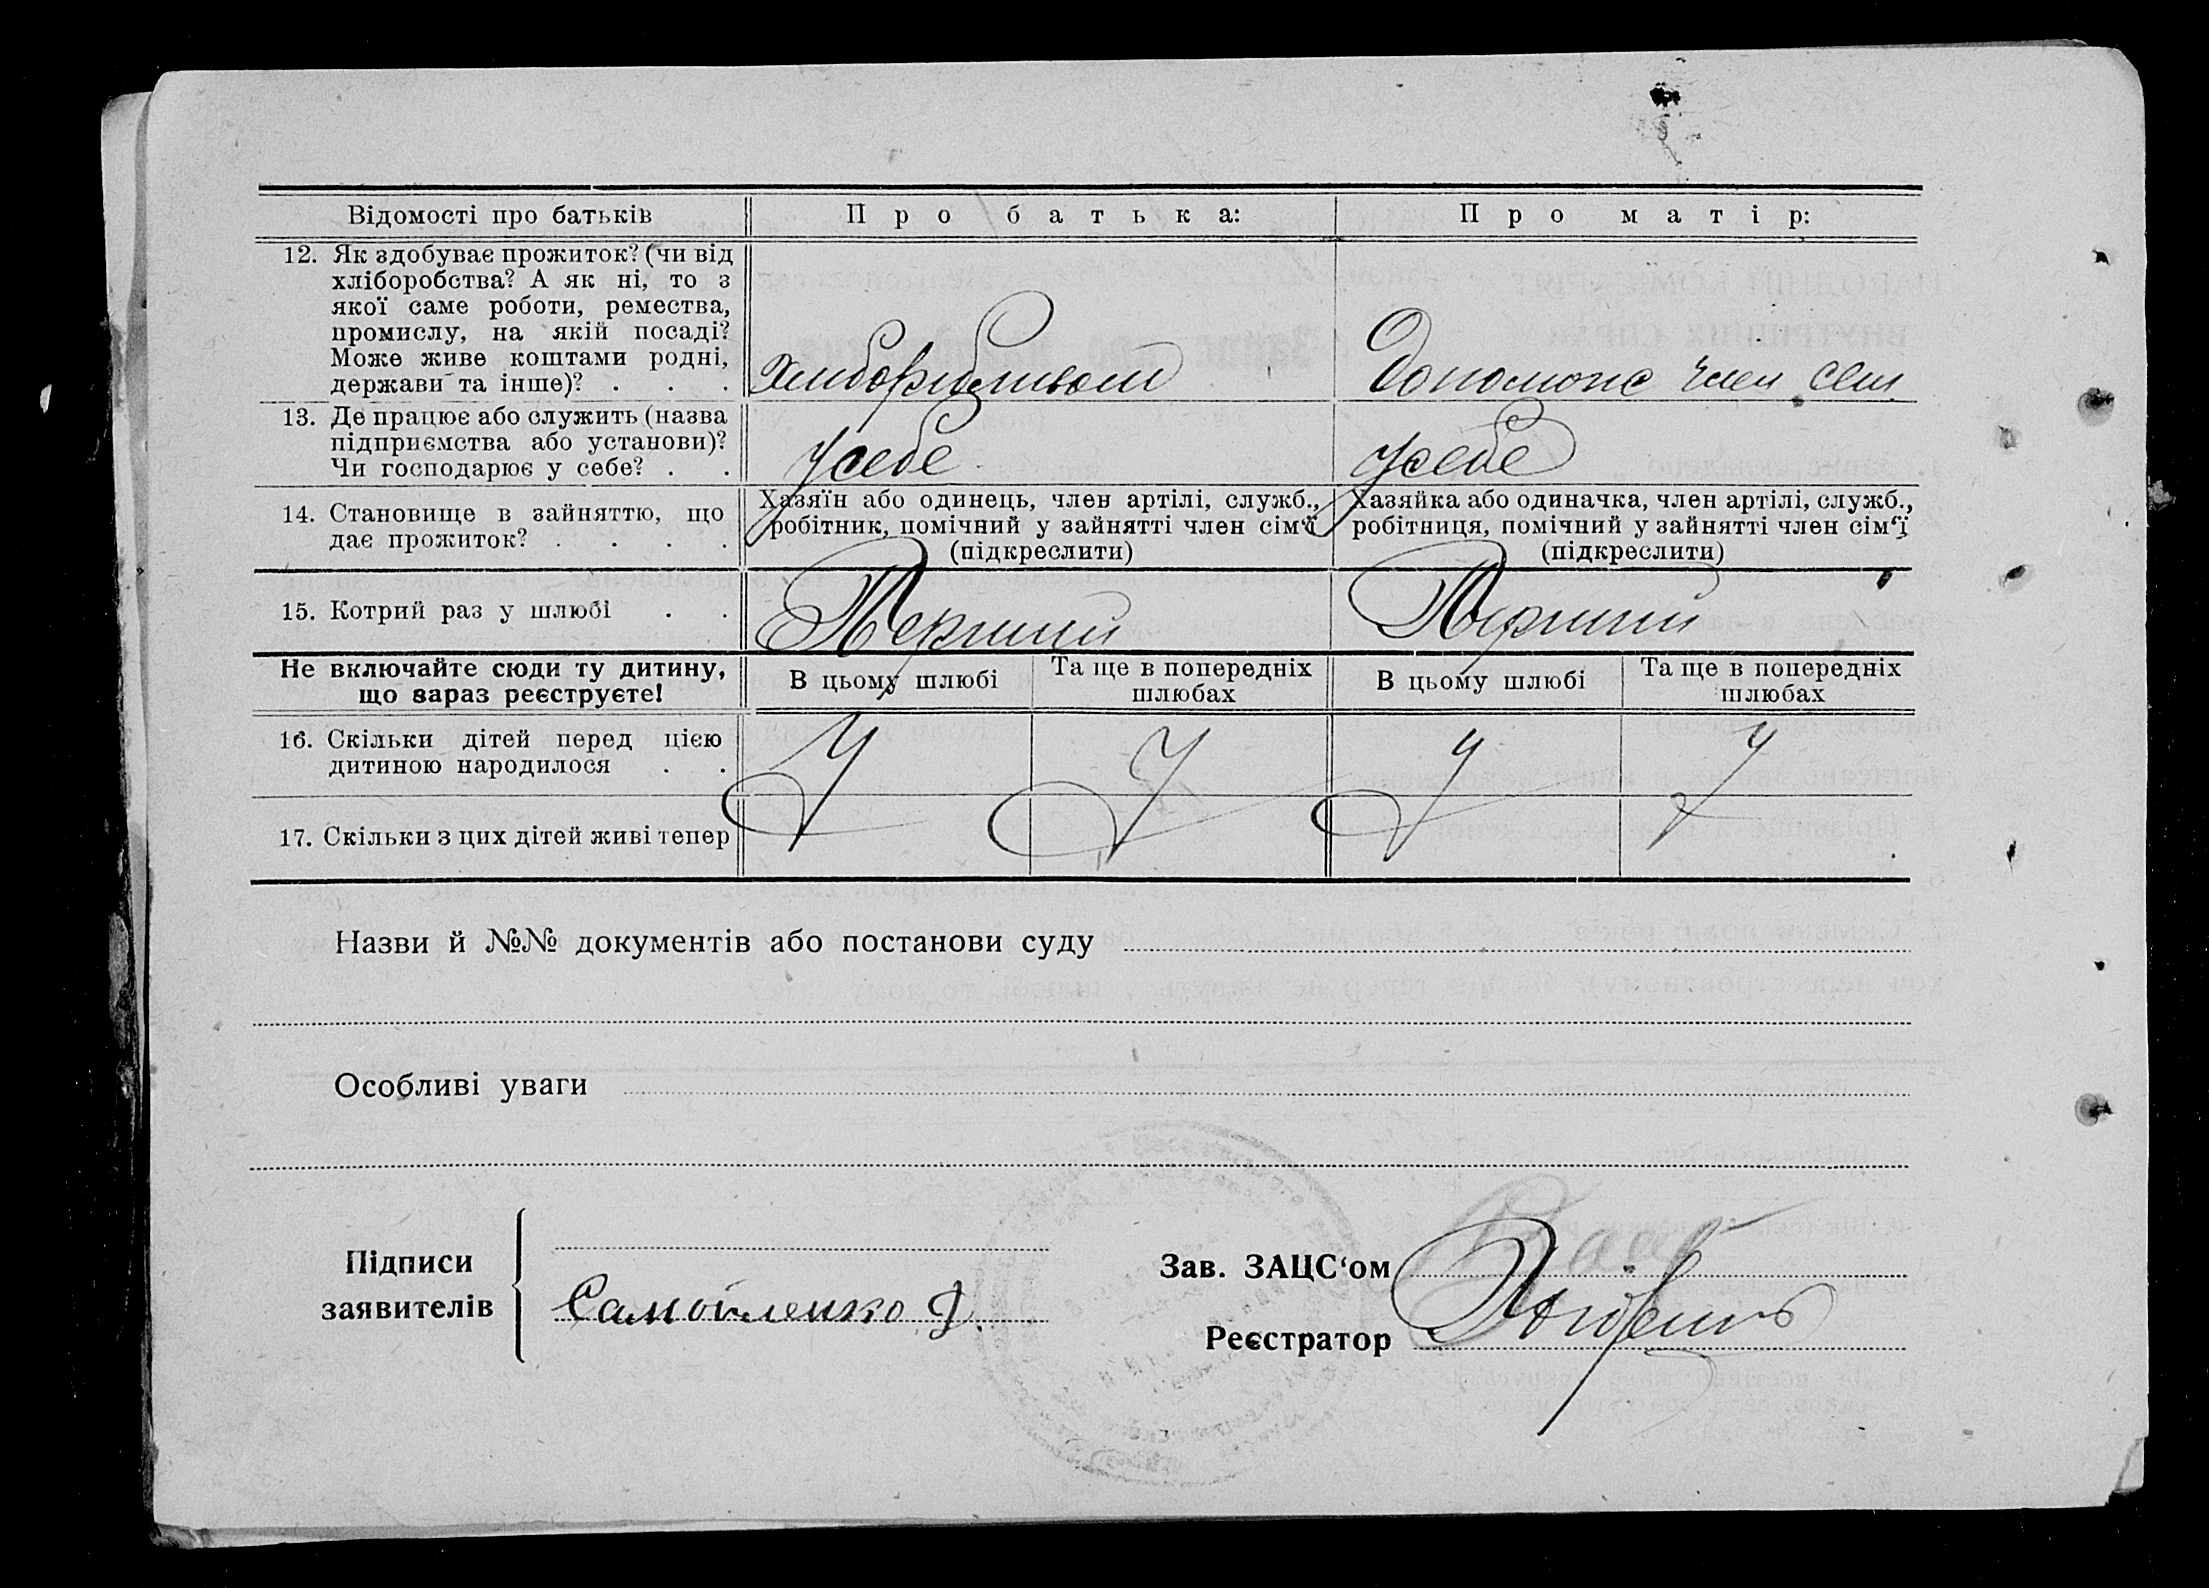 Відомості про батьків
Про батька:
Про матір:
12. Як здобуває прожиток? (чи від
хліборобства? А як ні, то з
якої саме роботи, ремества,
промислу, на якій посаді?
Може живе коштами родні,
держави та інше)? . . .
Хлиборибливом
Допомогає член сем
13. Де працює або служить (назва
підприємства або установи)?
Чи господарює у себе? . .
Усебе
Усебе
14. Становище в зайняттю, що
дає прожиток? . . . .
Хазяїн або одинець, член артілі, служб.,
робітник, помічний у зайнятті член сім'ї
(підкреслити)
Хазяйка або одиначка, член артілі, служб.,
робітниця, помічний у зайнятті член сім'ї
(підкреслити)
15. Котрий раз у шлюбі . .
Перший
Перший
Не включайте сюди ту дитину,
що зараз реєструєте!
В цьому шлюбі
Та ще в попередніх
шлюбах
В цьому шлюбі
Та ще в попередніх
шлюбах
16. Скільки дітей перед цією
дитиною народилося . .
17. Скільки з цих дітей живі тепер
Назви й №№ документів або постанови суду
Особливі уваги
Підписи
заявителів
Самойленко
Зав. ЗАЦС'ом
Реєстратор